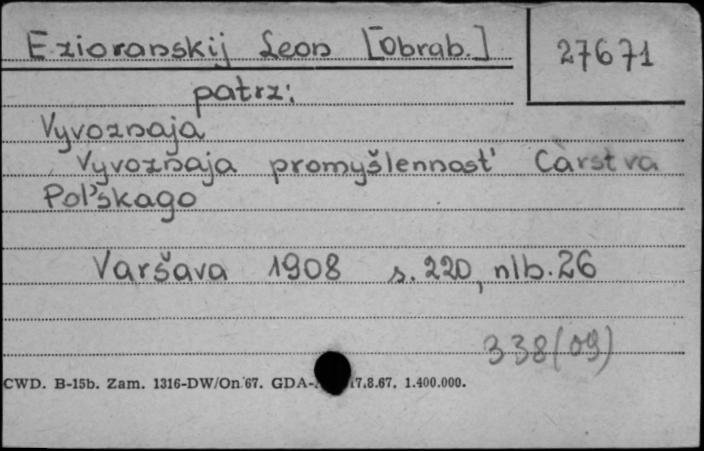 Ezioranskij Leon [Obrab.]
27671
patrz:
Vyvoznaja
Vyvoznaja promyšlennost' Carstva
Pol'skago
Varšava 1908 s. 220, nlb. 26
338(09)
CWD. B-15b. Zam. 1316-DW/On 67. GDA- 17.8.67. 1.400.000.